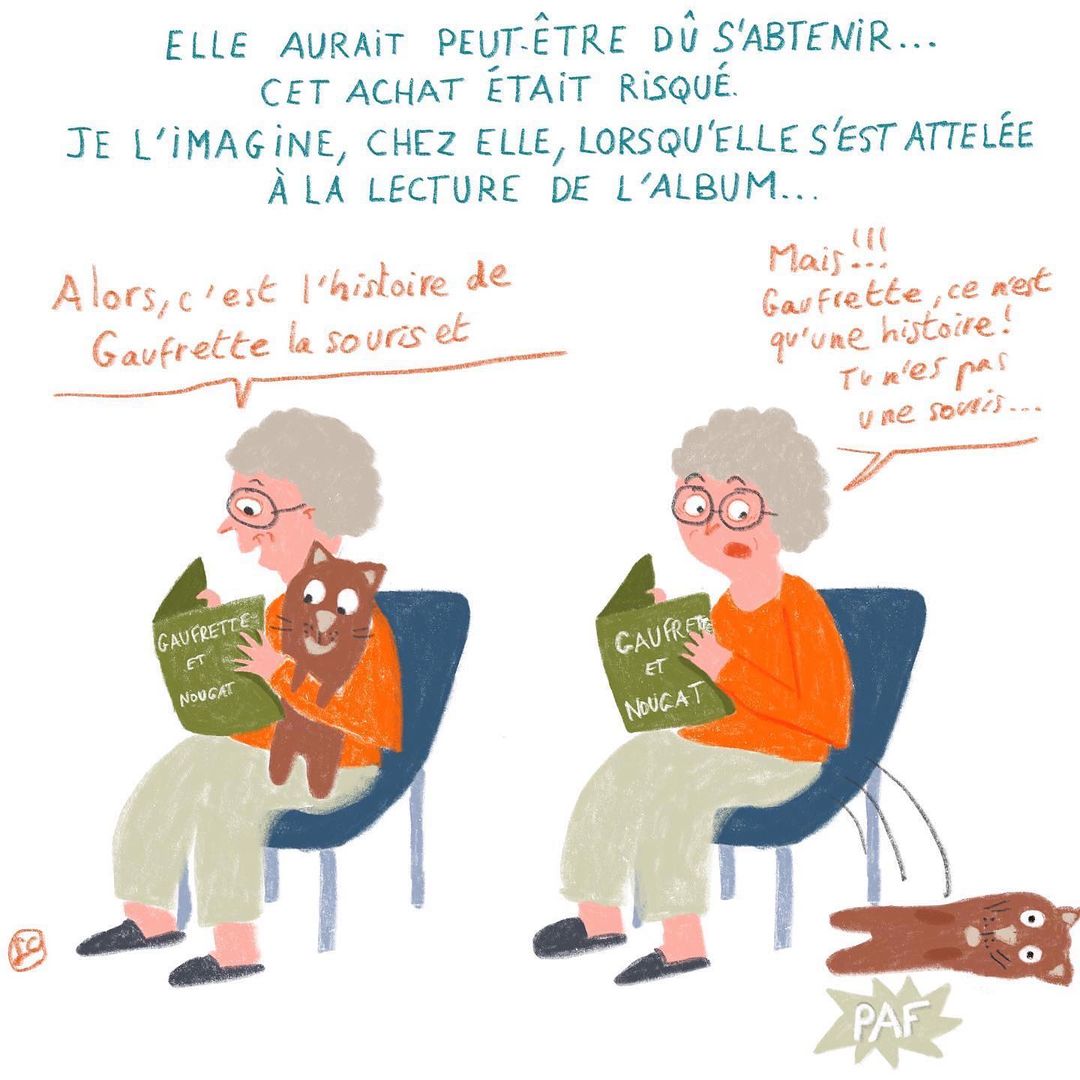 ELLE AURAIT PEUT-ÊTRE DÛ S'ABTENIR...
CET ACHAT ÉTAIT RISQUÉ.
JE L'IMAGINE, CHEZ ELLE, LORSQU'ELLE S'EST ATTELÉE
À LA LECTURE DE L'ALBUM...
Alors, c'est l'histoire de
Gaufrette la souris et
Mais!!!
Gaufrette, ce n'est
qu'une histoire!
Tu n'es pas
une souris...
GAUFRETTE
ET
NOUGAT
GAUFRETTE
ET
NOUGAT
PAF